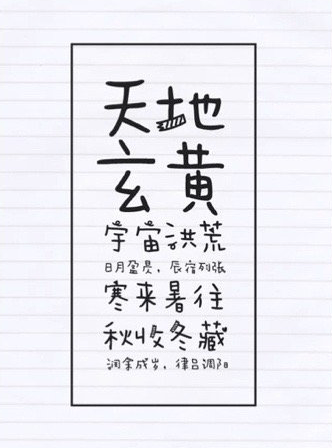 天地
玄黄
宇宙洪荒
日月盈昃，辰宿列张
寒来暑往
秋收冬藏
润拿成岁，律吕调阳